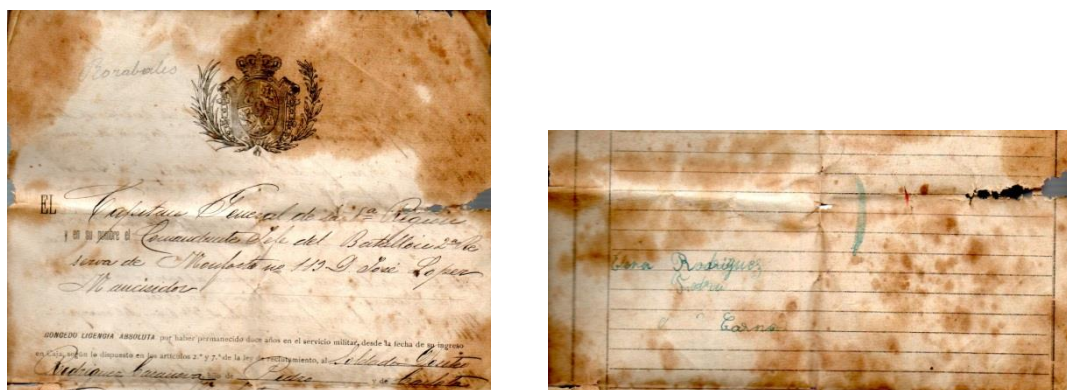 Rorabales
EL Capitan General de la 8ª Region
y en su nombre el Comandante Jefe del Batallón 2ª Re
serva de Monforte no 113 D José Lopez
Mancisidor
CONCEDO LICENCIA ABSOLUTA por haber permanecido doce años en el servicio militar, desde la fecha de su ingreso
en Caja, según lo dispuesto en los artículos 2.º y 7.º de la ley de reclutamiento, al Soldado
Rodriguez Casanova hijo de Pedro y de
Rodriguez
Pedro